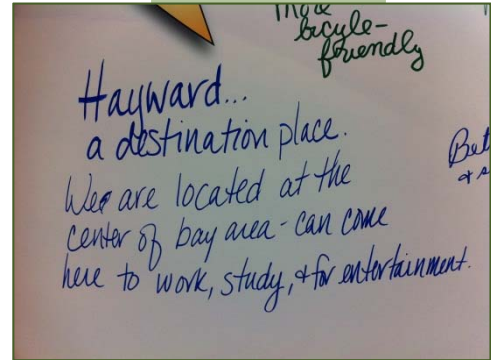 More
bicyle-
friendly
Hayward...
a destination place.
We are located at the
center of bay area - can come
here to work, study, & for entertainment.
Bet
& s